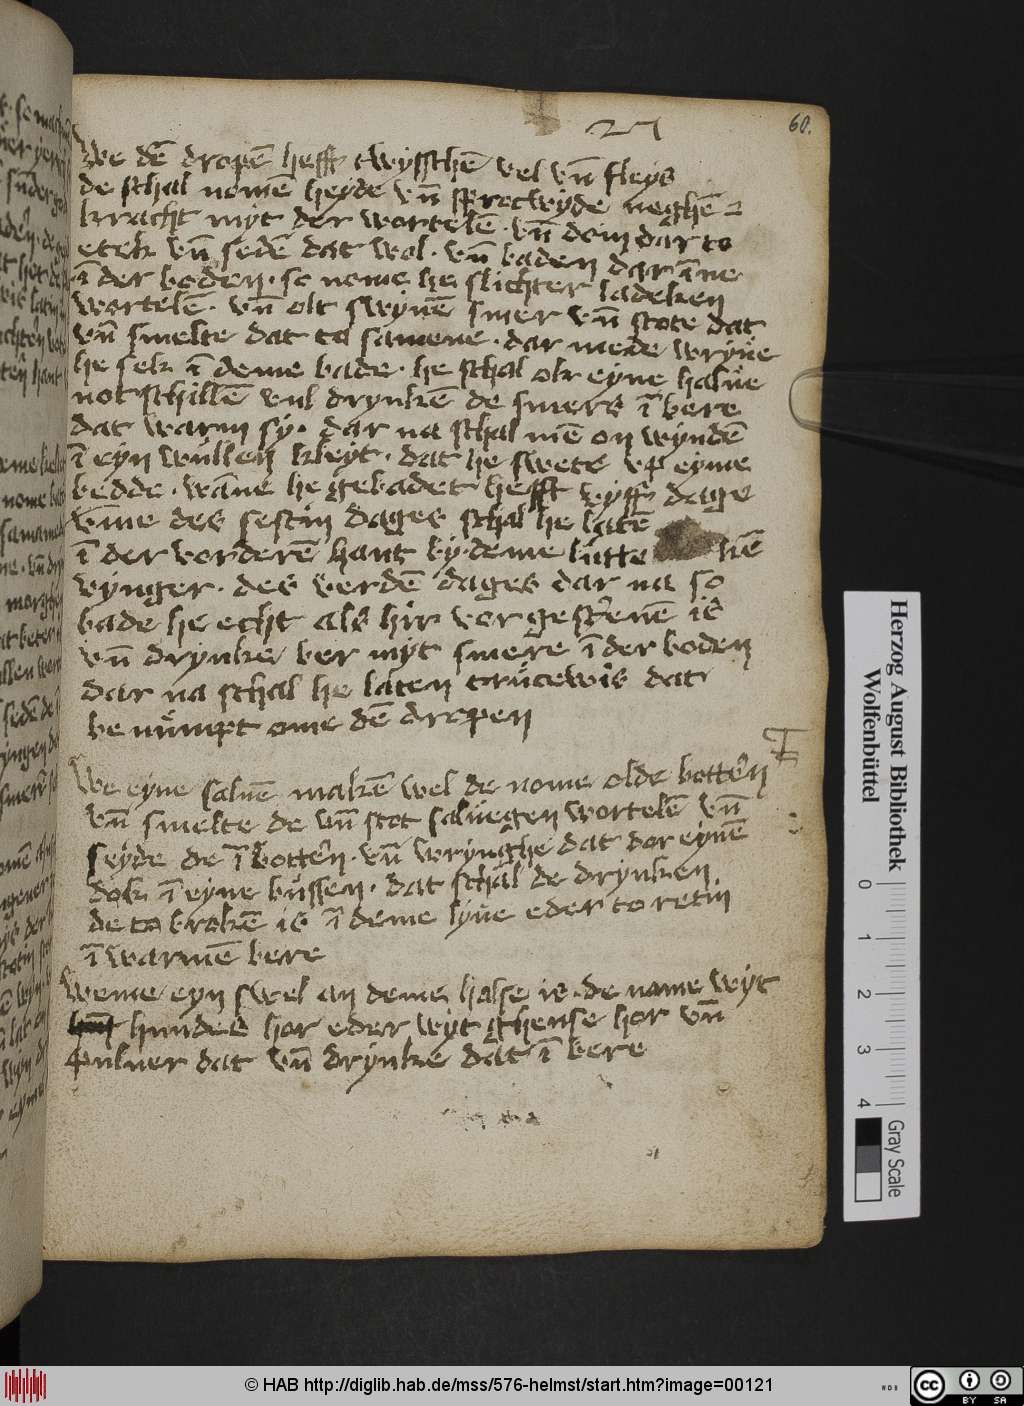 27
60.
We dē dropē hefft twysschē vel vn̄ fleys
de schal nomē heyde vn̄ sprecwyde neghē
kracht myt der wortelē · vn̄ dom dar to
etek vn̄ sedē dat wol · vn̄ baden dar īne
ī der boden · so nome he slichter ladeken
wortelē · vn̄ olt swynē smer vn̄ stote dat
vn̄ smelte dat to samene · dar mede wryue
he sek ī deme bade · he schal ok eyne halue
not schillē vul drynkē de smers ī bere
dat warm sy · dar na schal mē on wyndē
ī eyn wullen kleyt · dat he swete vp eyme
bedde · wāne he gebadet hefft vyff dage
vm̄e des sestin dages schal he latē
ī der vorderē hant by deme lutte kē
vynger · des verdē dages dar na so
bade he echt als hir vor gescrenē is
vn̄ drynke ber myt smere ī der boden
dar na schal he laten crucewis dat
be numpt ome dē dropen
We eyne saluē makē wel de nome olde botterū
vn̄ smelte de vn̄ stot saluegen wortelē vn̄
seyde de ī bottern · vn̄ wrynghe dat dor eynē
dok ī eyne bussen · dat schal de drynken
de to brokē is ī deme lyue eder to retin
ī warmē bere
Weme eyn swel an deme halse is · de nome wyt
hundes hor eder wyt ghense hor vn̄
puluer dat vn̄ drynke dat ī bere
Herzog August Bibliothek
Wolfenbüttel
0 1 2 3 4
Gray Scale
© HAB http://diglib.hab.de/mss/576-helmst/start.htm?image=00121
WDB
cc
BY SA